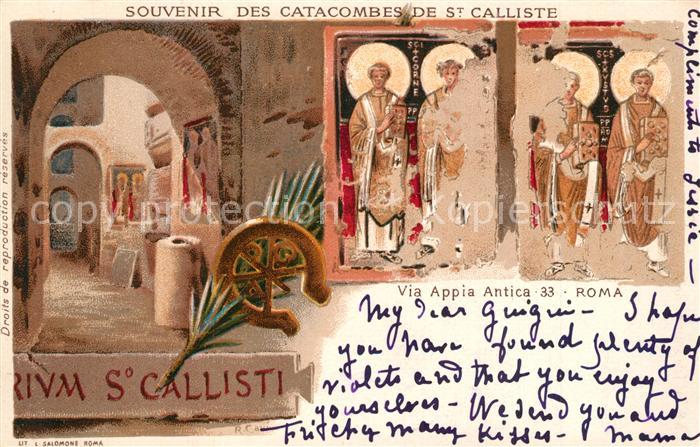 SOUVENIR DES CATACOMBES DE ST CALLISTE
Droits de reproduction réservés
SCI
CORNE
PP
SCS
XUSTUS
PP
ROM
copyright-protected Kopierschutz
Via Appia Antica 33 · ROMA
RIVM So CALLISTI
LIT. L. SALOMONE ROMA
My dear Guigui - I hope
you have found plenty of
violets and that you enjoy
yourselves - We send you and
many kisses - Mama
Compliments to